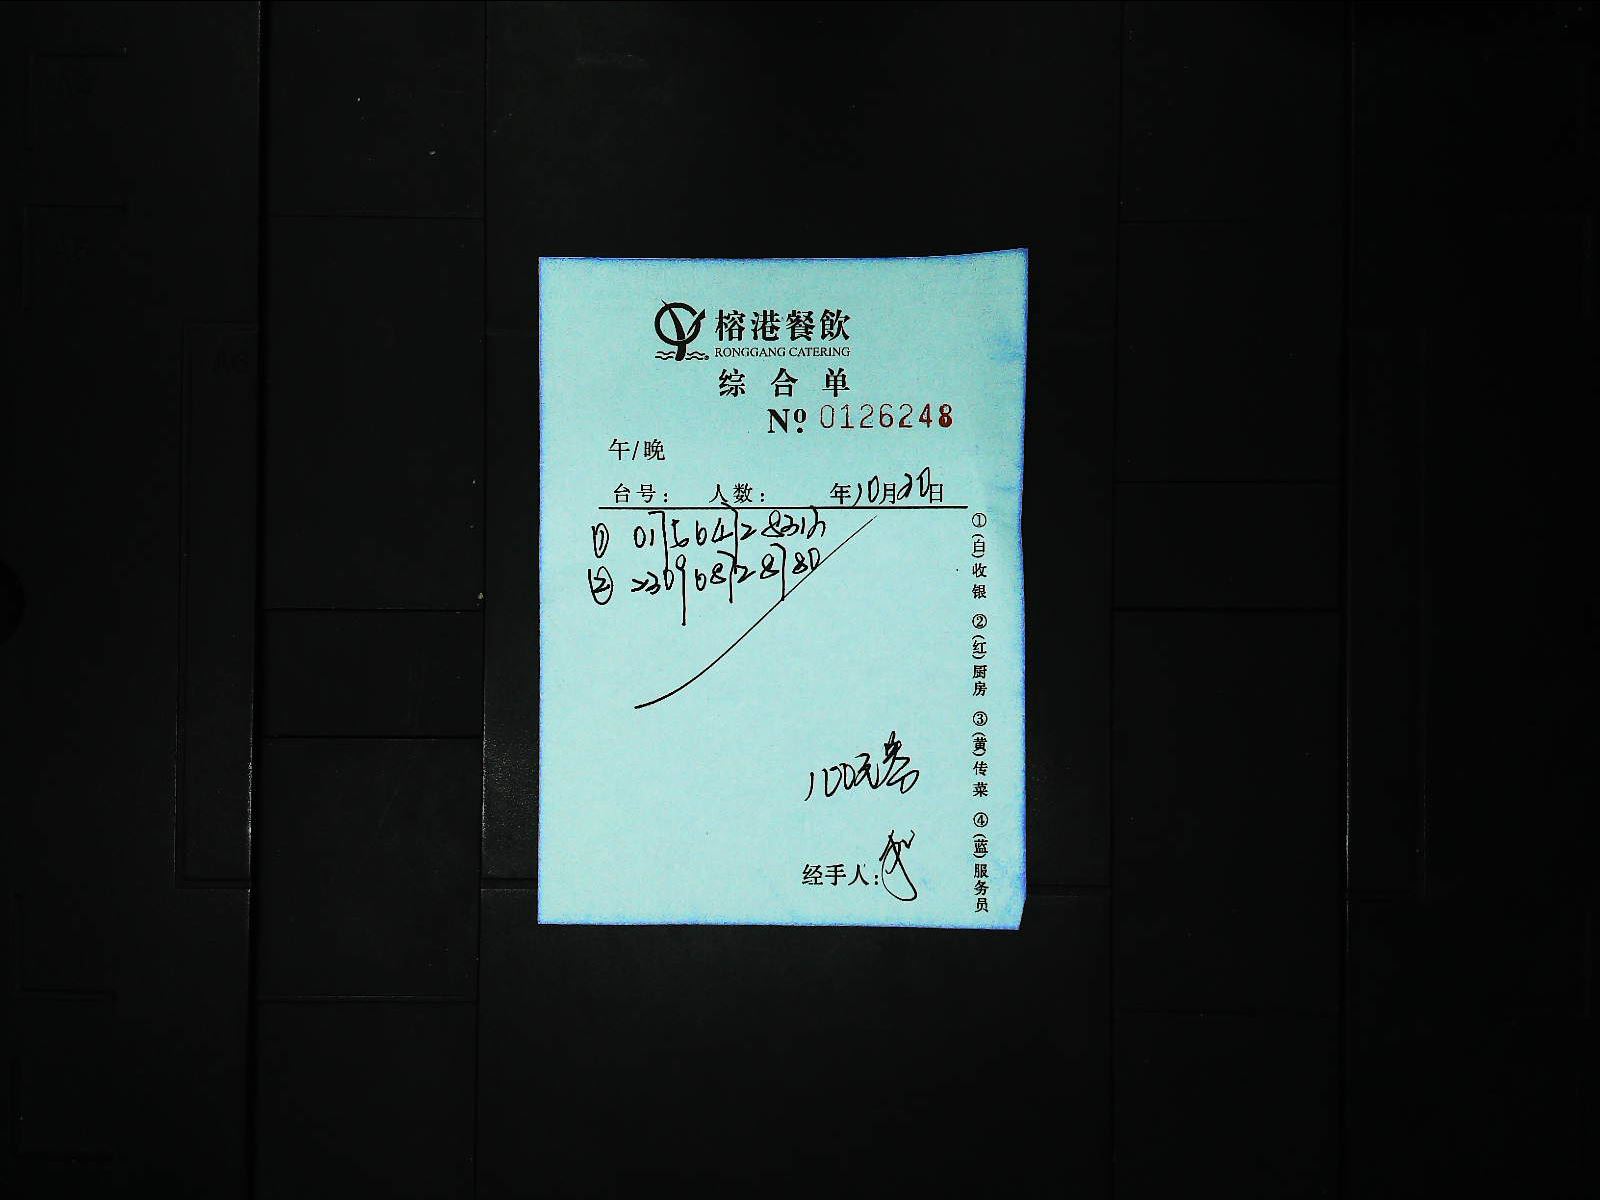 榕港餐飲
RONGGANG CATERING
综合单
Nº 0126248
午/晚
台号： 人数： 年10月20日
① 01
② 68 28 80
100元
经手人：
①(白)收银 ②(红)厨房 ③(黄)传菜 ④(蓝)服务员